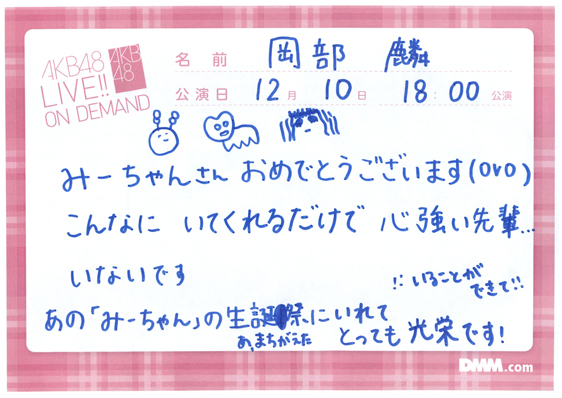 AKB48
LIVE!!
ON DEMAND
AKB
48
名前 岡部 麟
公演日 12月 10日 18:00 公演
みーちゃんさん おめでとうございます(OVO)
こんなに いてくれるだけで 心強い先輩...
いないです
!! いることが
できて!!
あの「みーちゃん」の生誕祭にいれて
あ、まちがえた
とっても 光栄です!
DMM.com